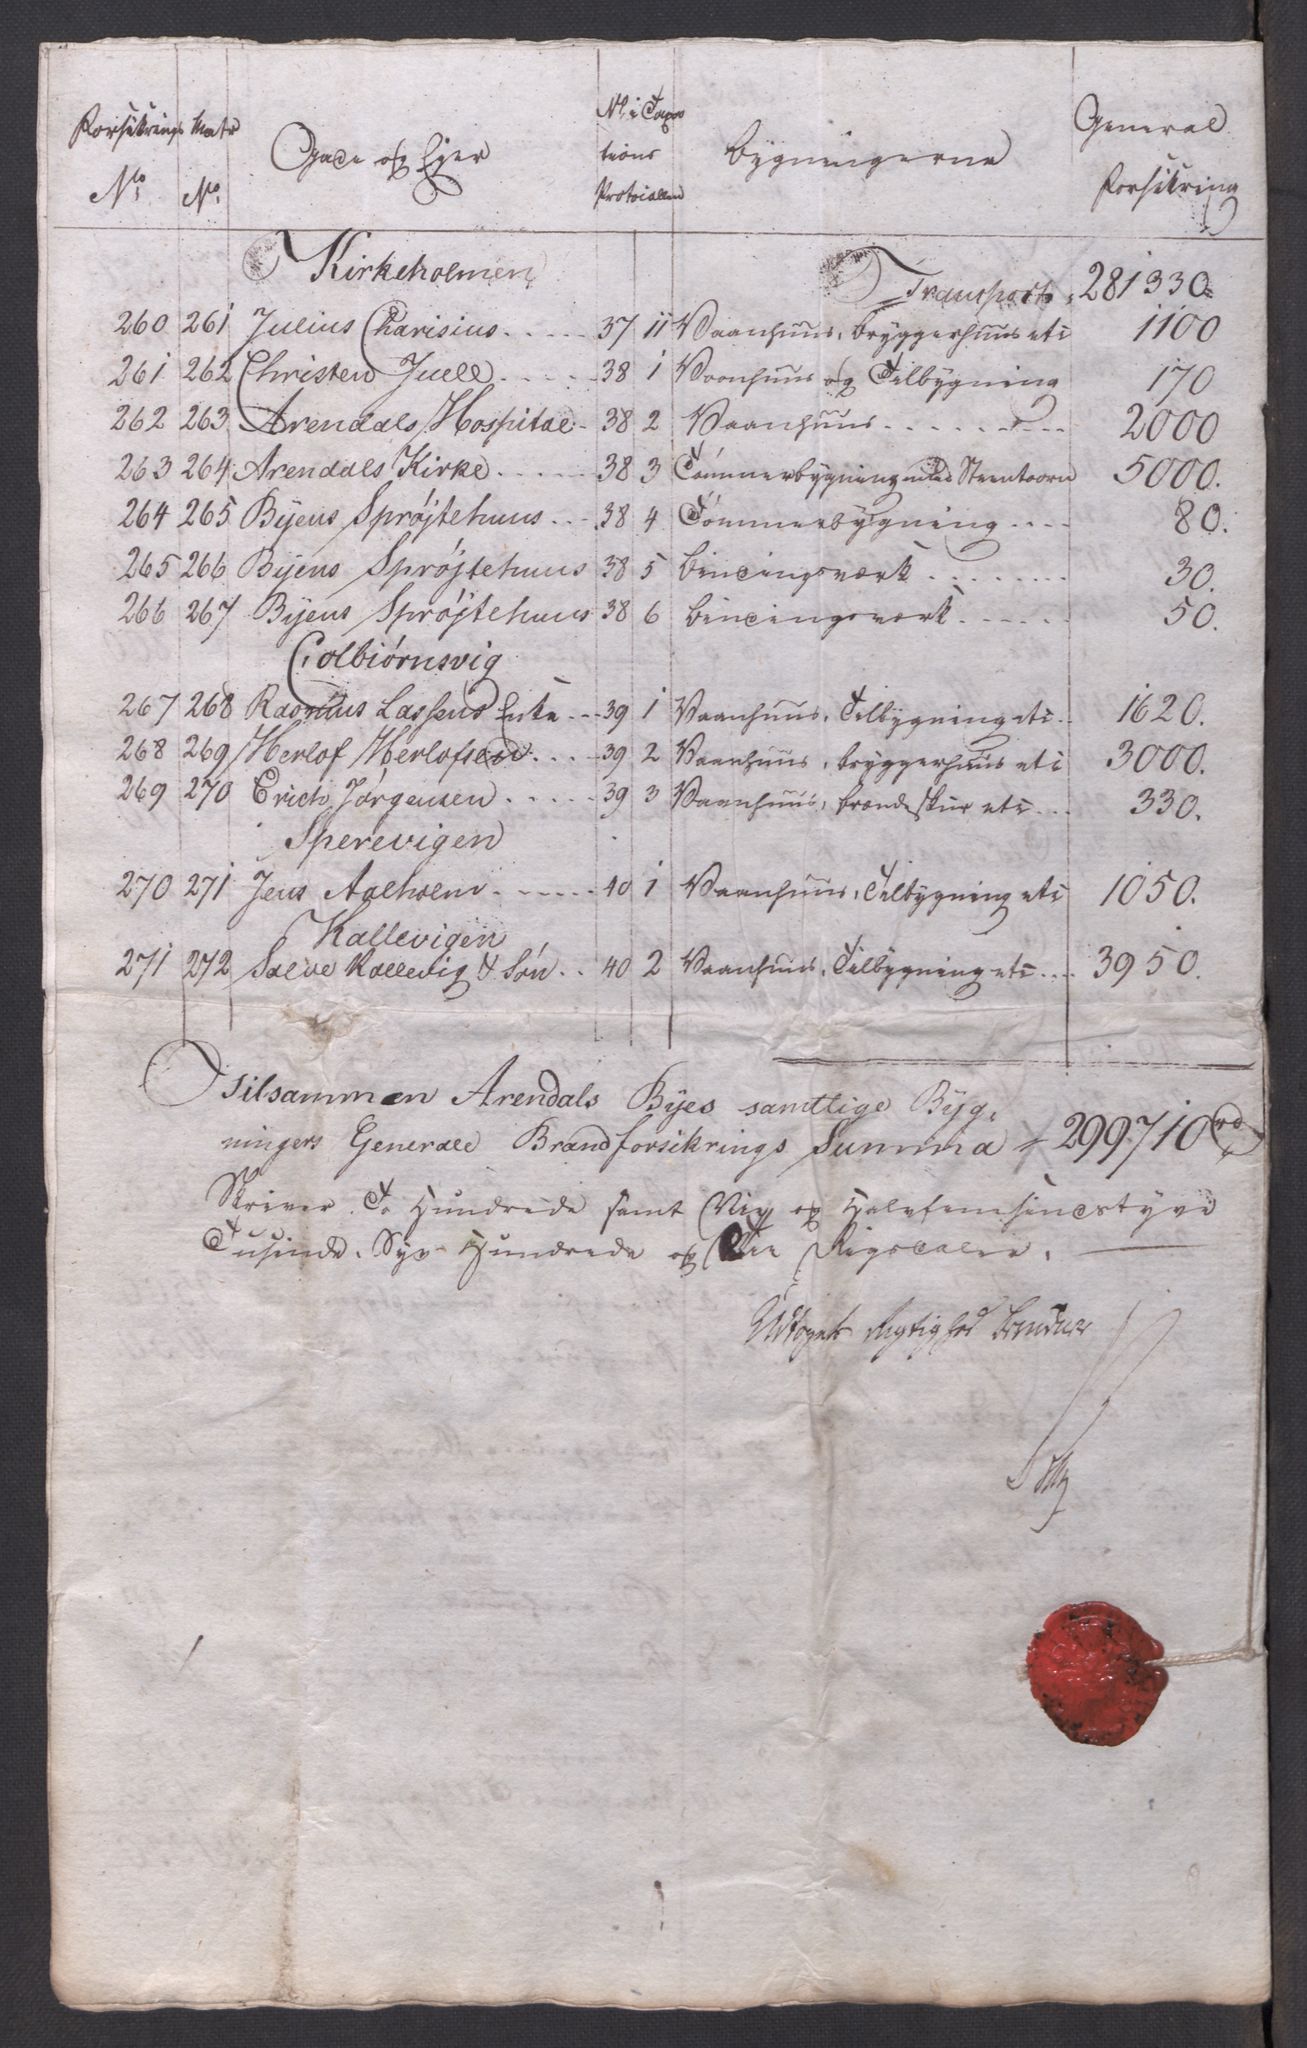 Forsikrings Matr Gade og Ejer Nº i Taxa- Bygningerne General
No No tions Forsikring
Protocollen
Kirkeholmen Transport 281330
260 261 Julius Charisius 37 11 Vaanhuus, Bryggerhuus etc 1100
261 262 Christen Juell 38 1 Vaanhuus og Tilbygning 170
262 263 Arendals Hospital 38 2 Vaanhuus 2000
263 264 Arendals Kirke 38 3 Tømmerbygning med Steentaarn 5000.
264 265 Byens Sprøjtehuus 38 4 Tømmerbygning 80.
265 266 Byens Sprøjtehuus 38 5 Bindingsværk 30.
266 267 Byens Sprøjtehuus 38 6 Bindingsværk 50.
Colbiórnsvig
267 268 Rasmus Lassens Enke 39 1 Vaanhuus, Tilbygning etc 1620.
268 269 Herlof Herlofsen 39 2 Vaanhuus, Bryggerhuus etc 3000.
269 270 Erich Jørgensen 39 3 Vaanhuus, Brændeskur etc 330.
Sperevigen
270 271 Jens Aalholm 40 1 Vaanhuus, Tilbygning etc 1050.
Kallevigen
271 272 Salve Kallevig & Søn 40 2 Vaanhuus, Tilbygning etc 3950.
Tilsammen Arendals Byes samtlige Byg-
ningers Generale Brandforsikrings Summa 299710 rd
Skriver To Hundrede samt Nie og Halvfemsindstyve
Tusinde, Syv Hundrede og Tie Rigsdaler.
Udtogets Rigtighed